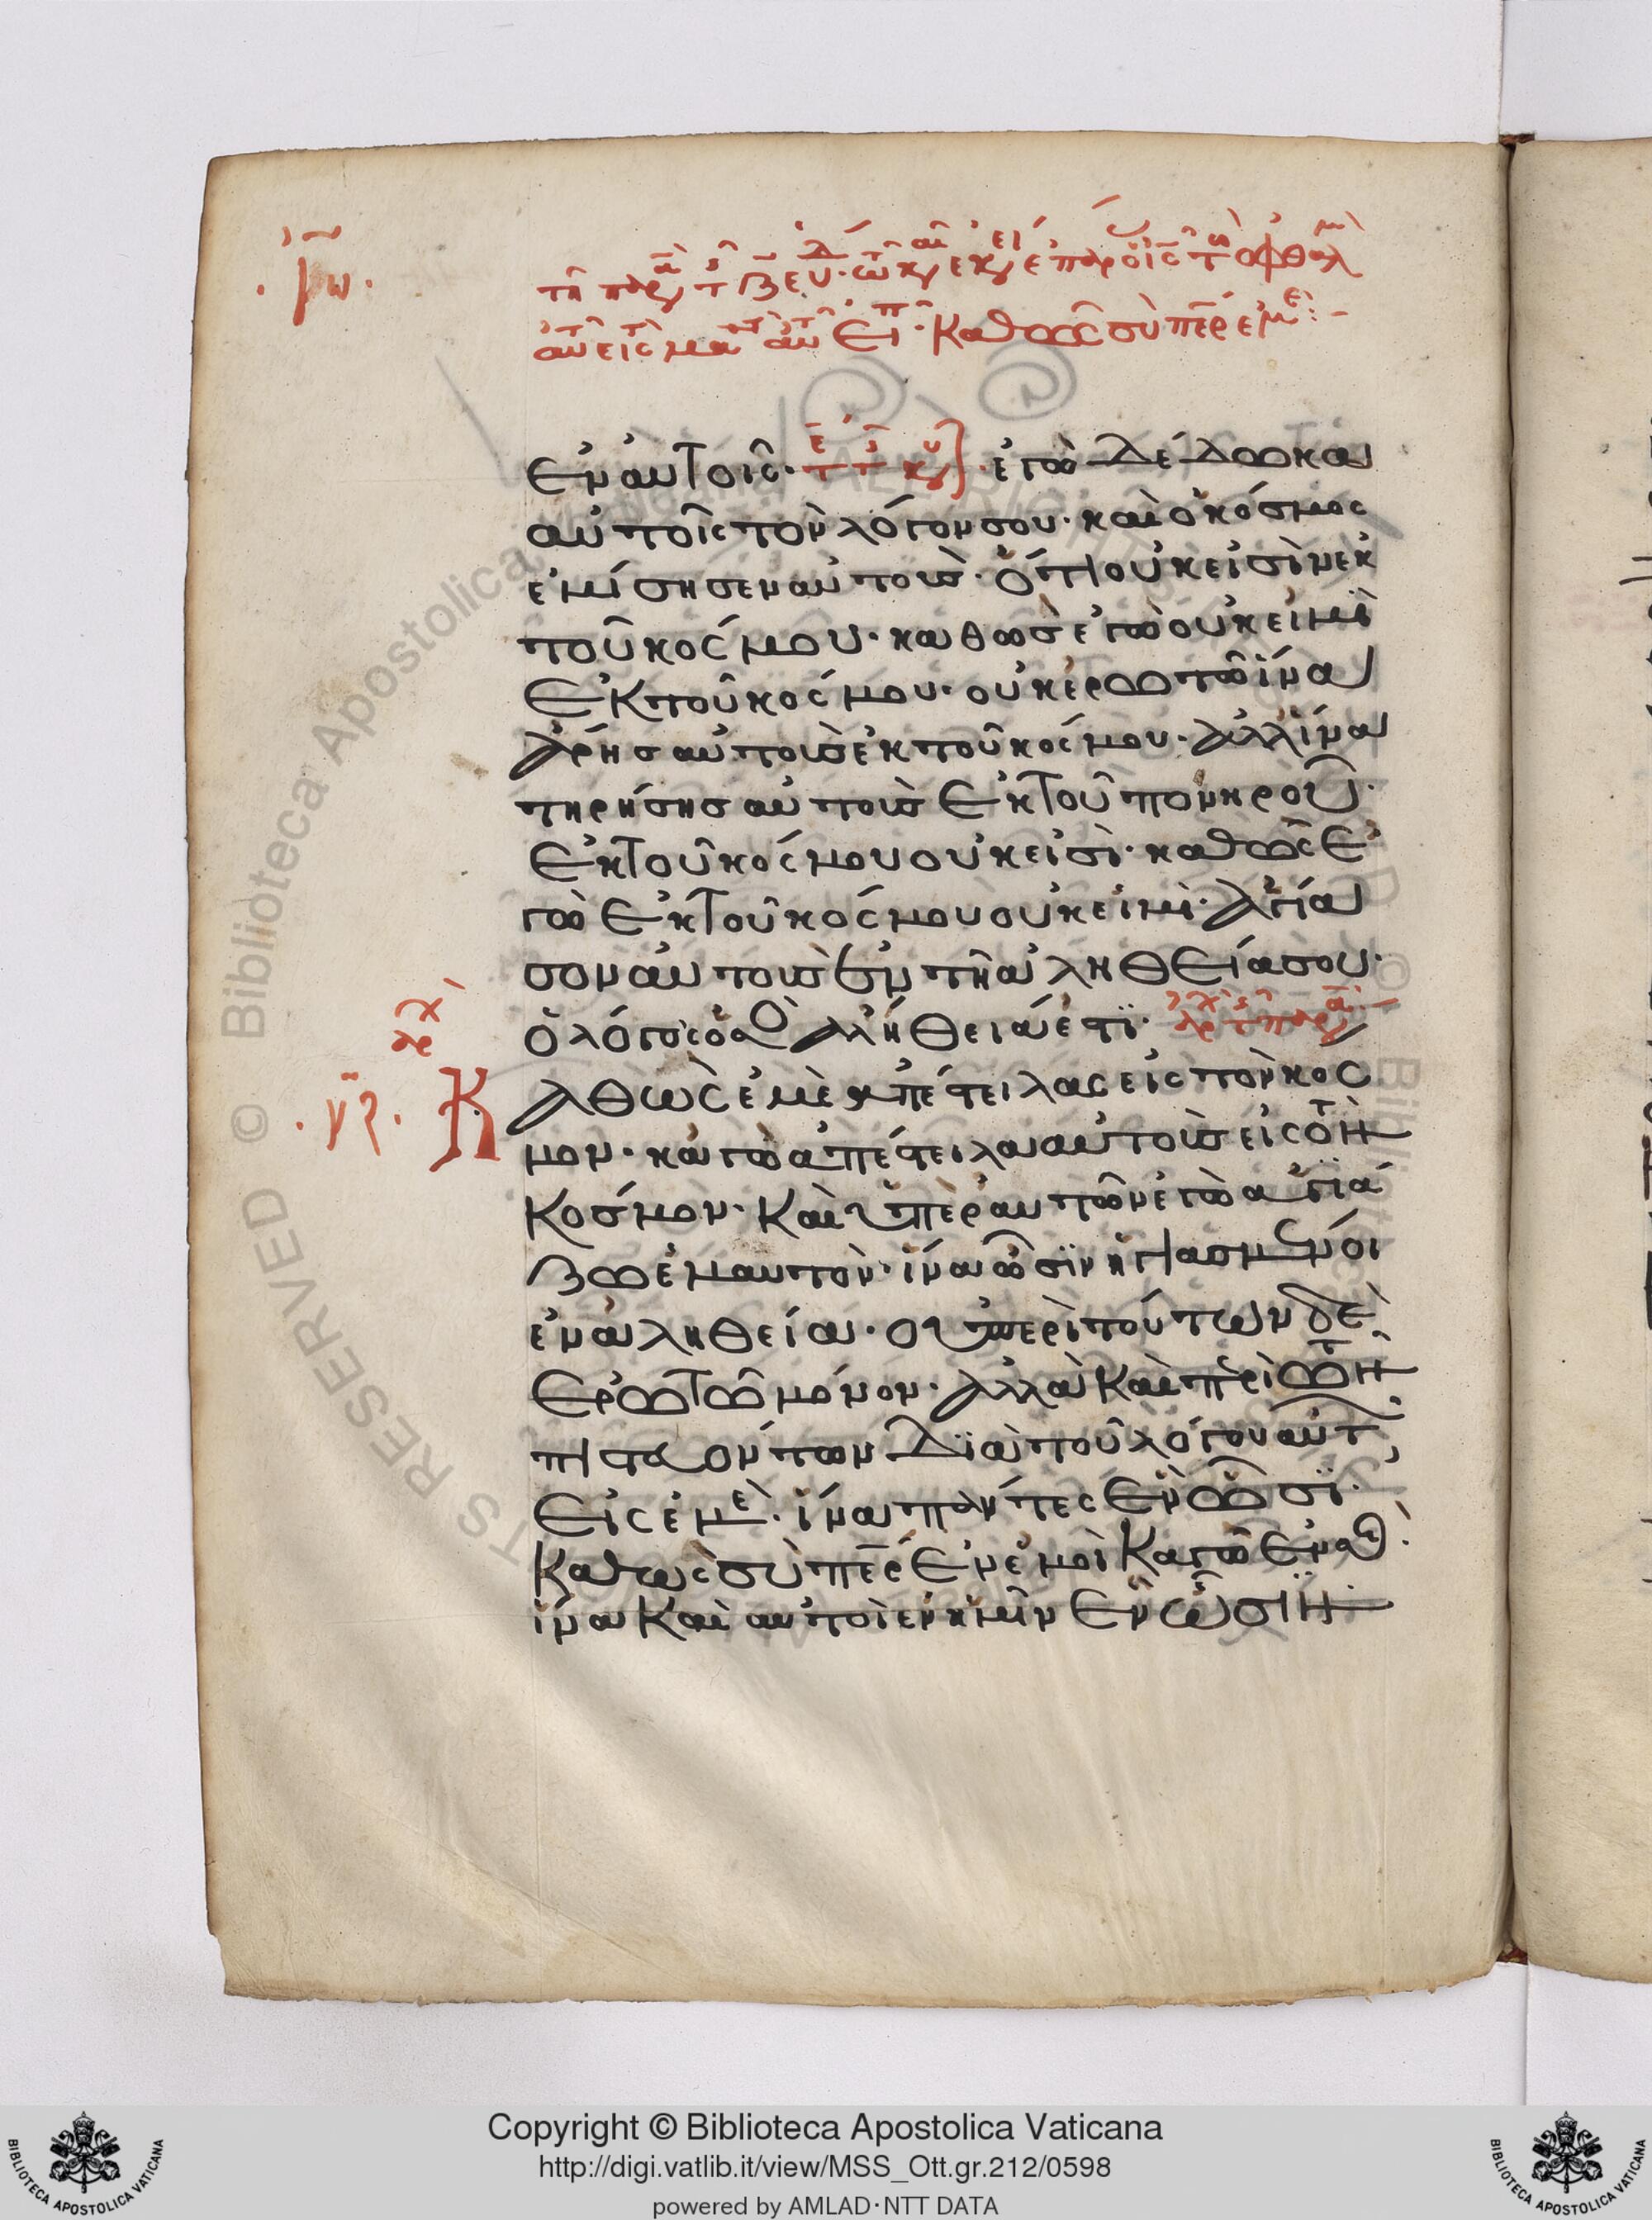 .ιω.
τῆ παρα τ ζ ευ. τῶ και εκει ἐπάρ ο ις τ οφθαλμ
αὐτ εἰς μαθ αὐτ εἶπ. Καθῶς σὺ περ ἐμὲ:-
ἐν αὐτοῖς. ἐγὼ δέδωκα
αὐτοῖς τὸν λόγον σου. καὶ ὁ κόσμος
ἐμίσησεν αὐτοὺς. ὅτι οὐκ εἰσὶν ἐκ
τοῦ κόσμου. καθὼς ἐγὼ οὐκ εἰμὶ
ἐκ τοῦ κόσμου. οὐκ ἐρωτῶ ἵνα
ἄρης αὐτοὺς ἐκ τοῦ κόσμου. ἀλλ ἵνα
τηρήσης αὐτοὺς ἐκ τοῦ πονηροῦ.
ἐκ τοῦ κόσμου οὐκ εἰσὶ. καθῶς ἐ
γὼ ἐκ τοῦ κόσμου οὐκ εἰμὶ. ἁγία
σον αὐτοὺς ἐν τῆ ἀληθείᾳ σου.
ὁ λόγος ὁ σὸς ἀλήθειά ἐστϊ.
αρχ
.γ. Κ
αθὼς ἐμὲ ἀπέστειλας εἰς τὸν κόσ
μον. κἀγὼ ἀπέστειλα αὐτοὺς εἰς τὸν
κόσμον. Καὶ ὑπὲρ αὐτῶν ἐγὼ ἁγιά
ζω ἐμαυτὸν. ἵνα ὦσϊν ἡγιασμένοι
ἐν ἀληθείᾳ. οὐ περὶ τούτων δὲ
ἐρωτῶ μόνον. ἀλλὰ Καὶ περὶ τῶν
πιστευόντων διὰ τοῦ λόγου αὐτ
εἰς ἐμὲ. ἵνα πάντες ἓν ὦσϊ.
Καθὼς σὺ περ ἐν ἐμοὶ Καγὼ ἐν σοὶ.
ἵνα Καὶ αὐτοὶ ἐν ἡμῖν ἓν ὦσιν
Copyright © Biblioteca Apostolica Vaticana
http://digi.vatlib.it/view/MSS_Ott.gr.212/0598
powered by AMLAD·NTT DATA
BIBLIOTECA APOSTOLICA VATICANA
BIBLIOTECA APOSTOLICA VATICANA